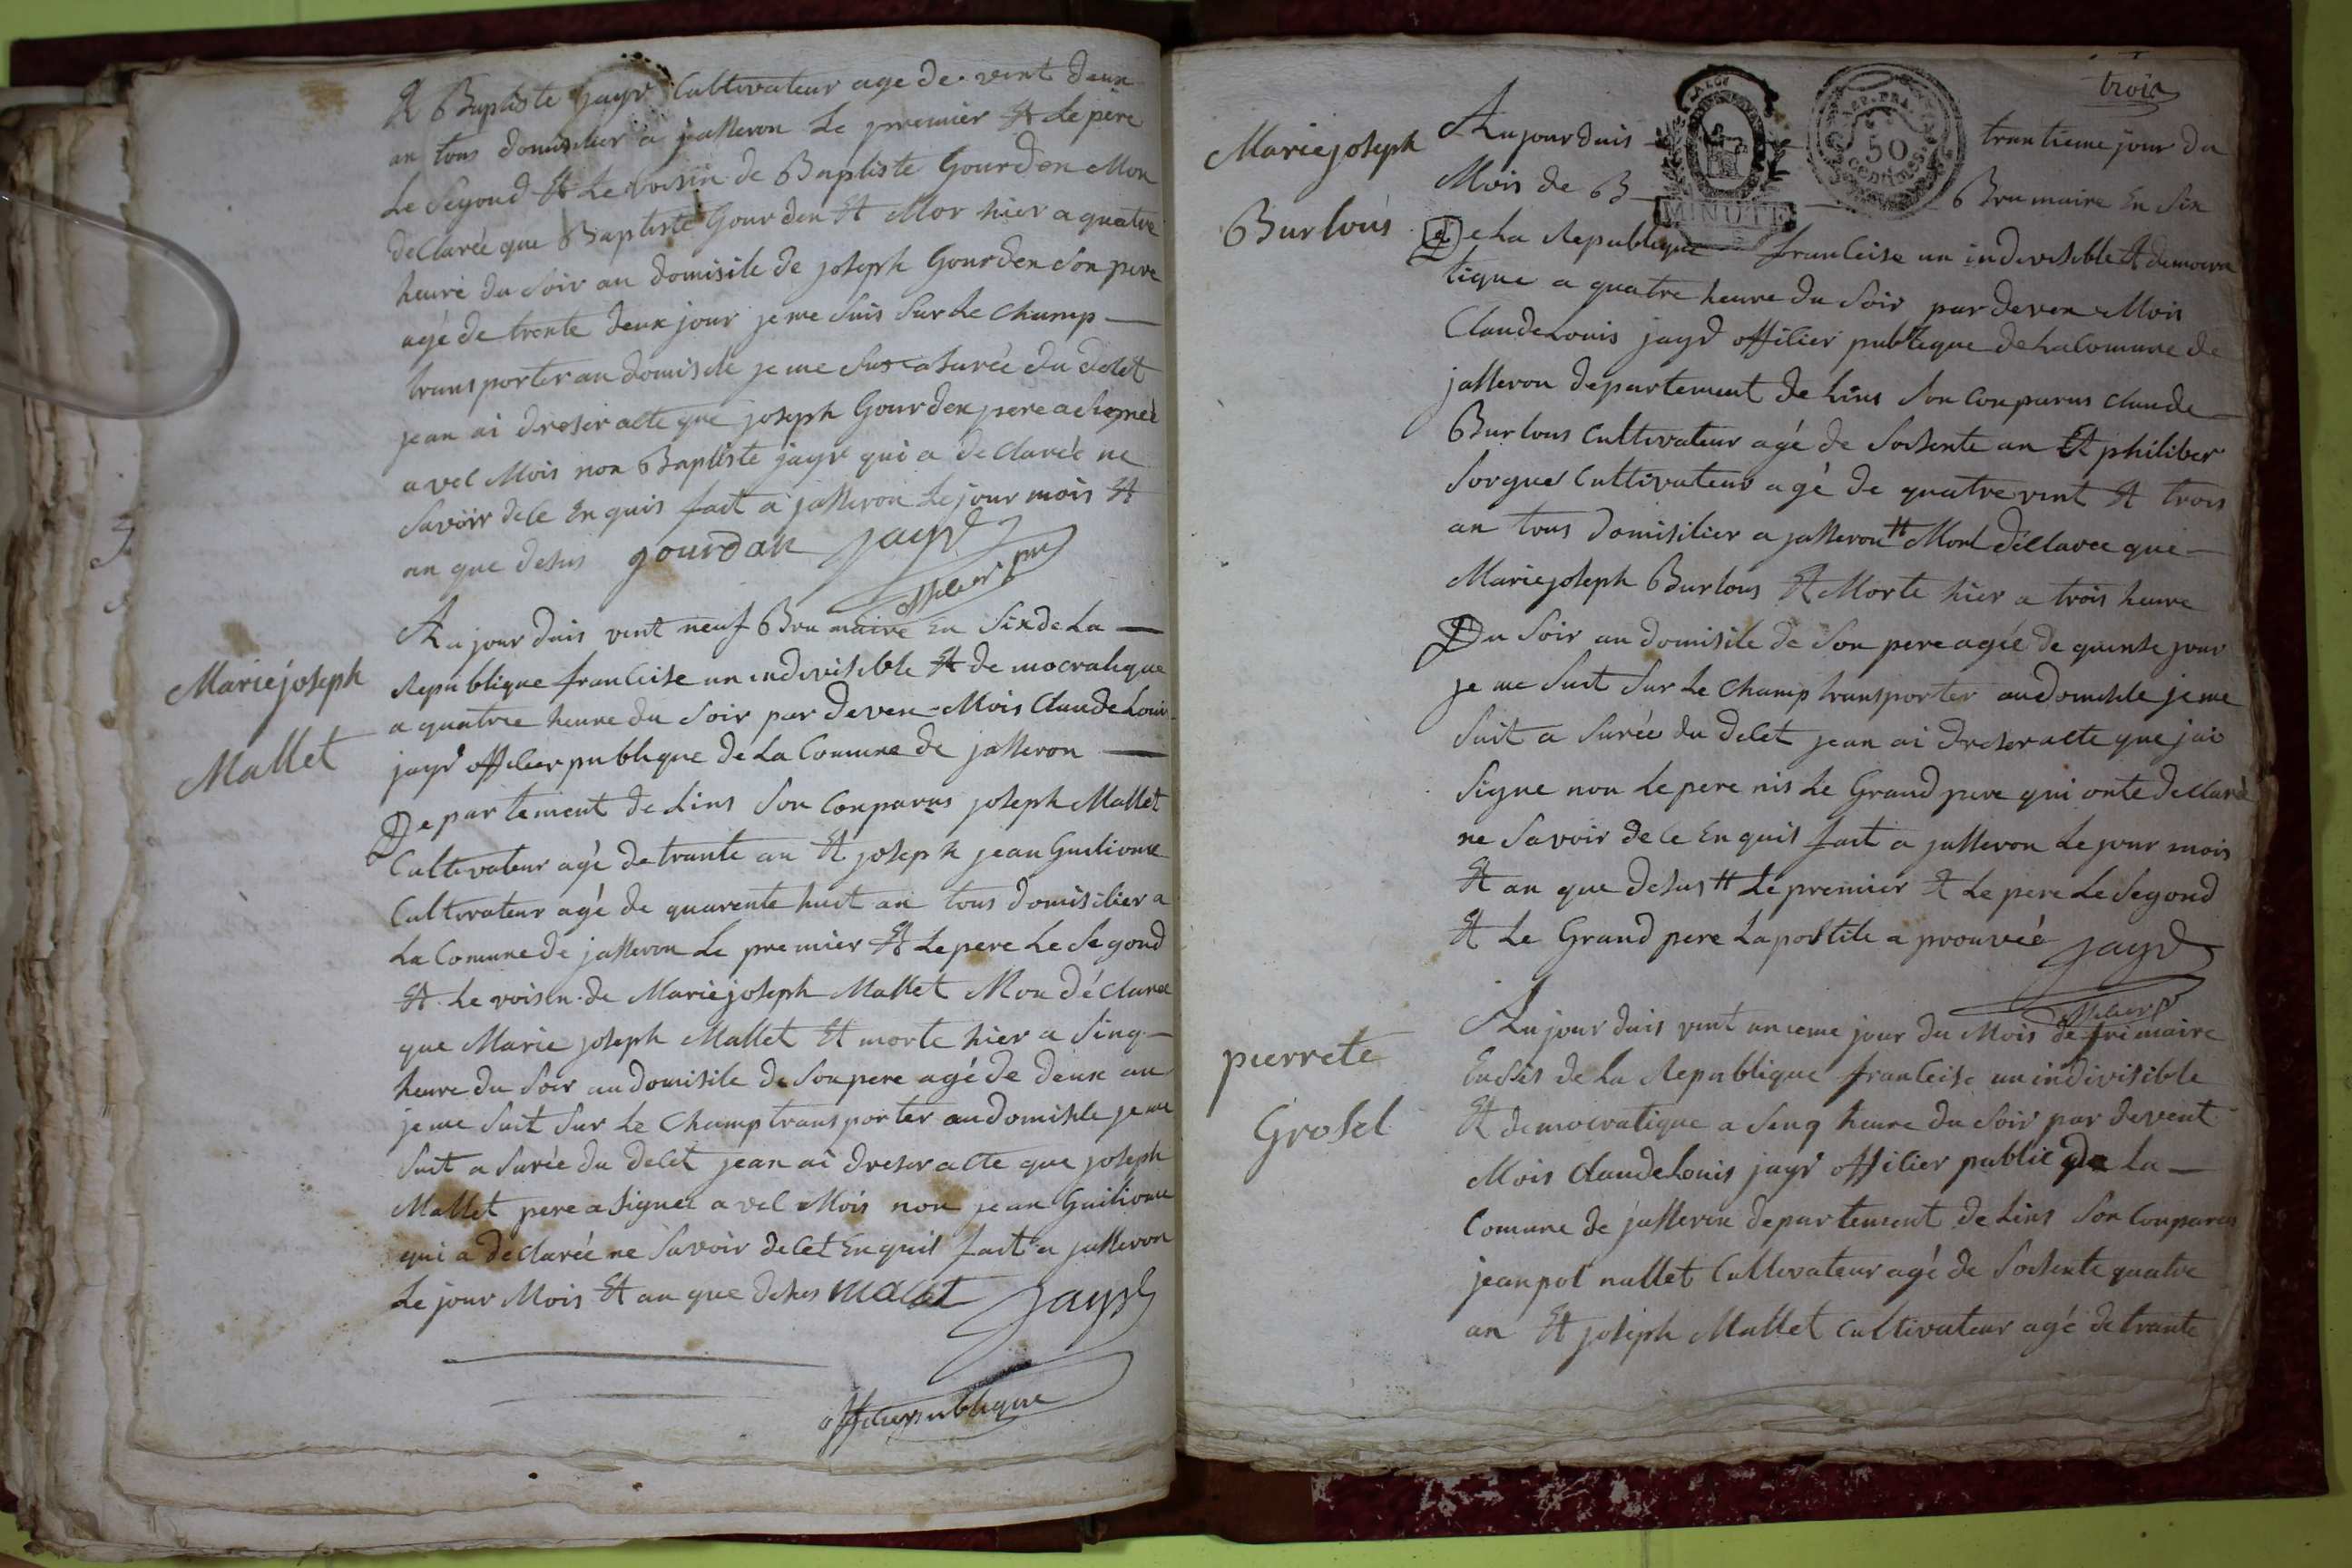 Et Baptiste jayr Cultivateur age de vint deux
an tous domisilier a jasseron Le premier Et Le pere
Le segond Et Le voisin de Baptiste Gourden Mon
declarée que Baptiste Gourden Et Mor hier a quatre
heure du soir au domisile de joseph Gourden son pere
agé de trente deux jour je me suis sur Le champ —
transporter au domisile je me suis asurée du delet
jean ai dreser acte que joseph Gourden pere a signeé
avec Mois non Baptiste jayr qui a declarée ne
savoir de ce Enquis fait a jasseron Le jour mois Et
an que desus gourdan jayr
officier pu
Marie joseph
Mallet
Aujourduis vint neuf Brumaire En Six de La —
Republique franceise un indevisible Et democratique
a quatree heure du soir par deven Mois Claude Louis
jayr officier publique de La Comune de jasseron —
Departement de Lins son Conparus joseph Mallet
Cultivateur agé de trante an Et joseph jean Guiliome
Cultivateur agé de quarente huit an tous domisilier a
La Comune de jasseron Le premier Et Le pere Le segond
Et Le voisin de Marie joseph Mallet Mon déclaree
que Marie joseph Mallet Et morte hier a sinq —
heure du soir au domisile de son pere agé de deux an
je me suit sur Le champ transporter au domisile je me
suit asurée du delet jean ai dreser acte que joseph
Mallet pere a signee avec Mois non jean Guiliome
qui a declareé ne savoir de cet Enquis fait a jasseron
Le jour Mois Et an que desus malet jayr
officier publique
trois
MINUTE
REP. FRA.
50
centimes
Marie joseph
Burlous
Aujourduis — trentieme jour du
Mois de B — Brumaire En Six
de La Republique francleise un indevisible Et democra
tique a quatre heure du soir par deven Mois
Claude Louis jayr officier publique de La Comune de
jasseron departement de Lins son Conparus claude —
Burlous Cultivateur agé de soisente an Et philiber
sorgues Cultivateur agé de quatre vint Et trois
an tous domisilier a jasseron # Mont déclaree que —
Marie joseph Burlous Et Morte hier a trois heure
Du soir au domisile de son pere agée de quinse jour
je me suit sur Le champ transporter au domisile je me
suit asurée du delet jean ai dreser acte que jai
signe non Le pere nis Le Grand pere qui onte declaré
ne savoir de ce Enquis fait a jasseron Le jour mois
Et an que desus # Le premier Et Le pere Le segond
Et Le Grand pere Lapostile a prouvée jayr
officier p
pierrete
Grosel
Aujourduis vint unieme jour du Mois de frimaire
En sis de La Republique franceise un indivisible
Et democratique a sinq heure du soir par devent
Mois Claude Louis jayr officier public de La —
Comune de jasseron departement de Lins son Conparus
jean pol nallet Cultivateur agé de soisente quatre
an Et joseph Mallet Cultivateur agé de trante